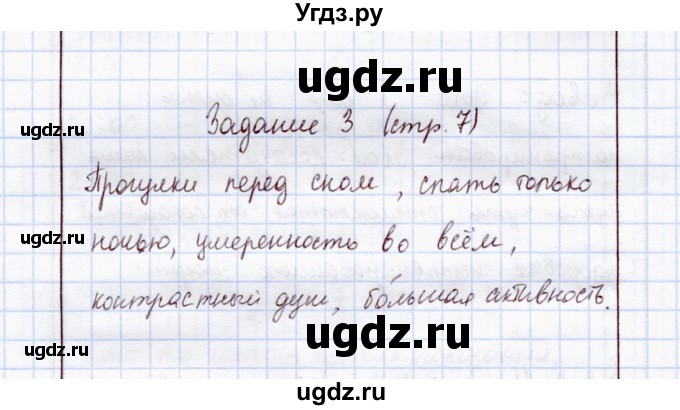 Угдз.ру
ugdz.ru
ugdz.ru
Задание 3 (стр. 7)
ugdz.ru
Прогулки перед сном, спать только
ugdz.ru
ugdz.ru
ночью, умеренность во всём,
контрастный душ, бо́льшая активность.
ugdz.ru
ugdz.ru
ugdz.ru